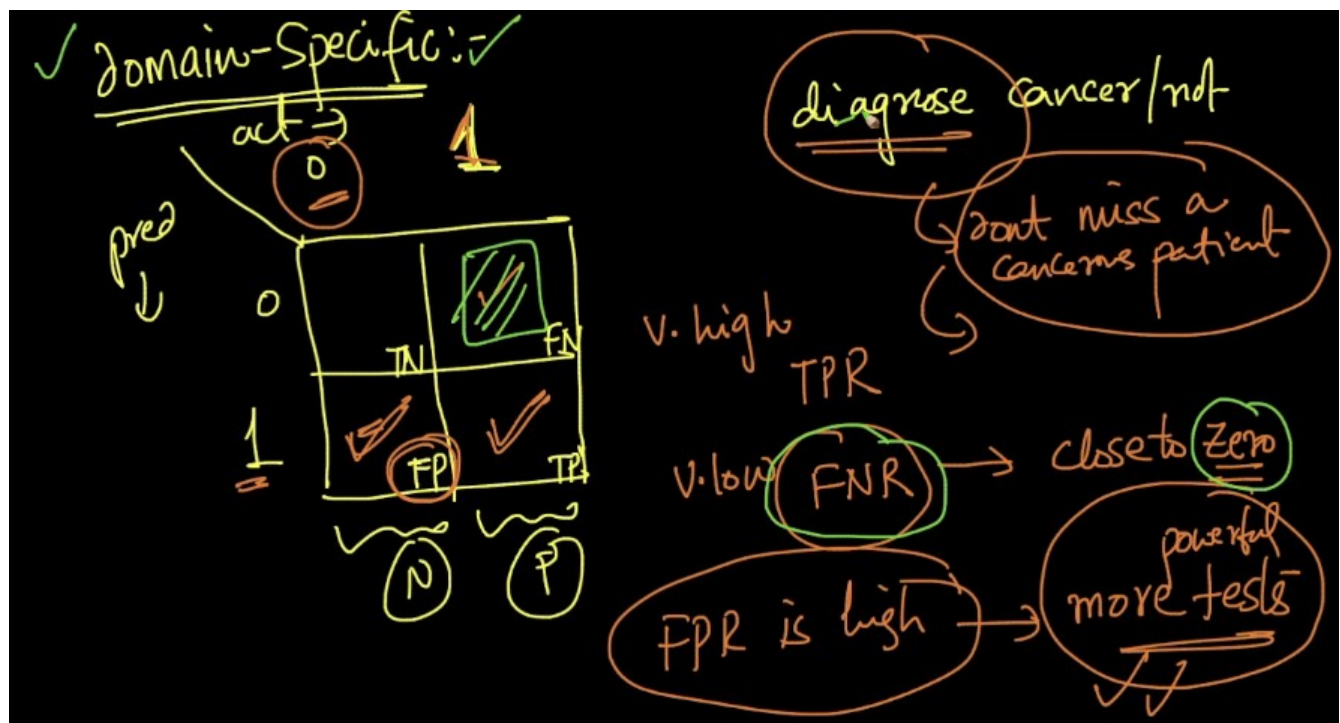 Domain-Specific:-
act →
0 1
pred
↓
0
TN FN
1
FP TP
N P
diagnose cancer/not
dont miss a
cancerous patient
v. high
TPR
v. low FNR → close to zero
FPR is high → powerful
more tests